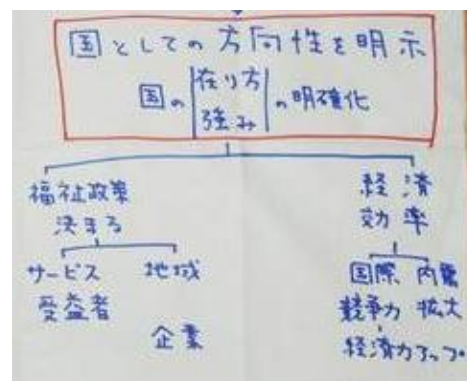 国としての方向性を明示
国の 在り方 強み の明確化
福祉政策
決まる
サービス 地域
受益者
企業
経済
効率
国際 内需
競争力 拡大
経済力アップ